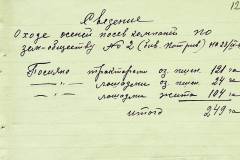 12
Сведение
О ходе осеней посев кампаний по
зем-обществу № 2 (бив. Петрив)
Посеяно тракторами оз пшен 121 га
—"— —"— лошадми оз пшен 24 га
—"— —"— лошадми жита 104 га
итого 249 га